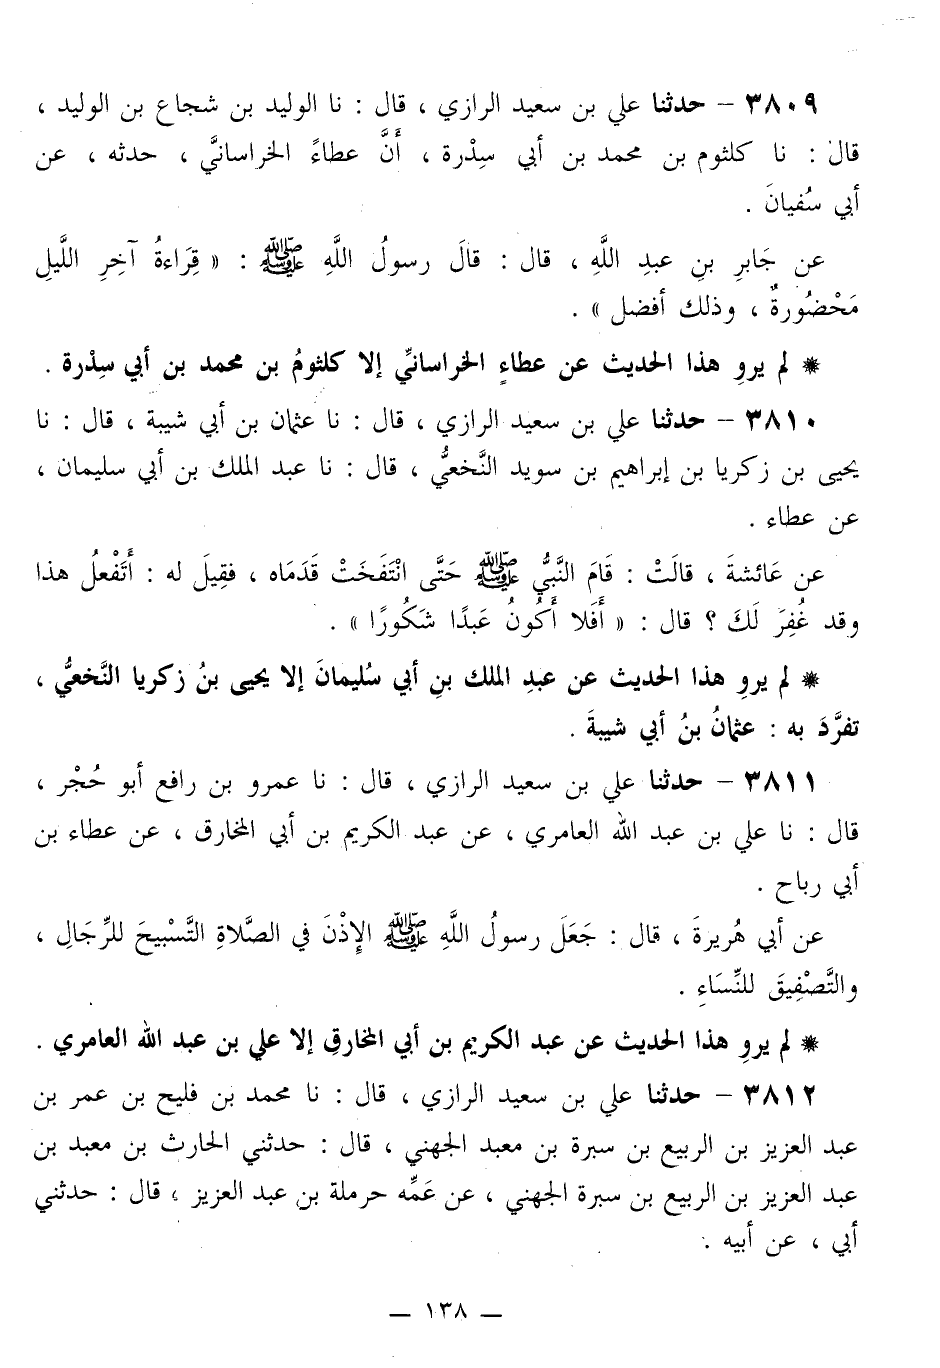 ٣٨٠٩ – حدثنا علي بن سعيد الرازي ، قال : نا الوليد بن شجاع بن الوليد ،
قال : نا كلثوم بن محمد بن أبي سِدْرة ، أَنَّ عطاءً الخراسانيَّ ، حدثه ، عن
أبي سُفيانَ .
عن جَابرِ بنِ عبدِ اللَّهِ ، قال : قالَ رسولُ اللَّهِ ﷺ : « قِرَاءةُ آخِرِ اللَّيلِ
مَحْضُورةٌ ، وذلك أفضل » .
* لم يروِ هذا الحديث عن عطاءٍ الخراسانيِّ إلا كلثومُ بن محمد بن أبي سِدْرة .
٣٨١٠ – حدثنا علي بن سعيد الرازي ، قال : نا عثمان بن أبي شيبة ، قال : نا
يحيى بن زكريا بن إبراهيم بن سويد النَّخعيُّ ، قال : نا عبد الملك بن أبي سليمان ،
عن عطاء .
عن عَائشةَ ، قالَتْ : قَامَ النَّبيُّ ﷺ حَتَّى انْتَفَخَتْ قَدَمَاه ، فقِيلَ له : أَتَفْعلُ هذا
وقد غُفِرَ لَكَ ؟ قال : « أَفَلا أَكُونُ عَبدًا شَكُورًا » .
* لم يروِ هذا الحديث عن عبدِ الملك بنِ أبي سُليمانَ إلا يحيى بنُ زكريا النَّخعيُّ ،
تفرَّدَ به : عثمانُ بنُ أبي شيبةَ .
٣٨١١ – حدثنا علي بن سعيد الرازي ، قال : نا عمرو بن رافع أبو حُجْر ،
قال : نا علي بن عبد الله العامري ، عن عبد الكريم بن أبي المخارق ، عن عطاء بن
أبي رباح .
عن أبي هُريرةَ ، قال : جَعَلَ رسولُ اللَّهِ ﷺ الإِذْنَ في الصَّلاةِ التَّسْبيحَ للرِّجَالِ ،
والتَّصْفِيقَ للنِّسَاءِ .
* لم يروِ هذا الحديث عن عبد الكريم بن أبي المخارقِ إلا علي بن عبد الله العامري .
٣٨١٢ – حدثنا علي بن سعيد الرازي ، قال : نا محمد بن فليح بن عمر بن
عبد العزيز بن الربيع بن سبرة بن معبد الجهني ، قال : حدثني الحارث بن معبد بن
عبد العزيز بن الربيع بن سبرة الجهني ، عن عَمِّه حرملة بن عبد العزيز ، قال : حدثني
أبي ، عن أبيه .
— ١٣٨ —